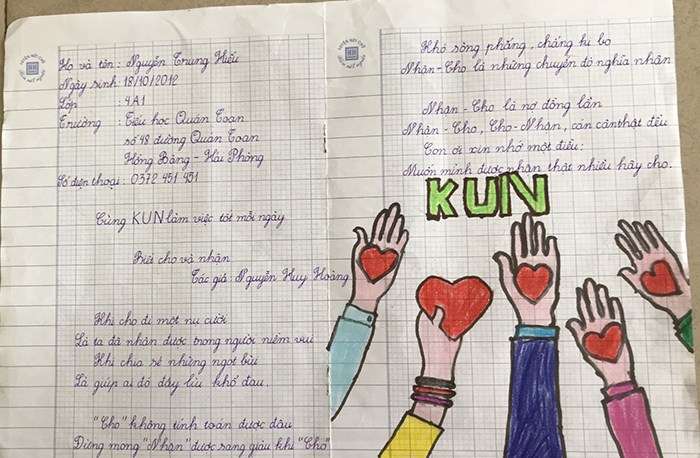 Họ và tên : Nguyễn Trung Hiếu
Ngày sinh: 18/10/2012
Lớp : 4A1
Trường : Tiểu học Quán Toan
số 48 đường Quán Toan
Hồng Bàng - Hải Phòng
Số điện thoại : 0372 451 451
Cùng KUN làm việc tốt mỗi ngày
Bưi cho và nhân
Tác giả : Nguyễn Huy Hoàng
Khi cho đi một nụ cười
Là ta đã nhận được trong người niềm vui
Khi chia sẻ những ngọt bùi
Là giúp ai đó đẩy lùi khổ đau.
"Cho" không tính toán được đâu
Đừng mong "Nhận" được sang giàu khi "Cho"
Khó sòng phẳng, chẳng tư bo
Nhận - Cho là những chuyến đò nghĩa nhân
Nhận - Cho là nợ đồng lần
Nhận - Cho, Cho - Nhận, cán cân thật đều
Con ơi xin nhớ một điều:
Muốn mình được nhận thật nhiều hãy cho.
KUN